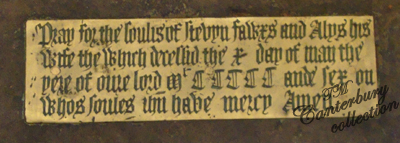 Pray for the soulis of stevyn fawxs and Alys his
wife the which decessid the x day of man the
yere of oure lord mˡ CCCCC ande sex on
whos soules ihu have mercy Amen
TM
Canterbury
collection